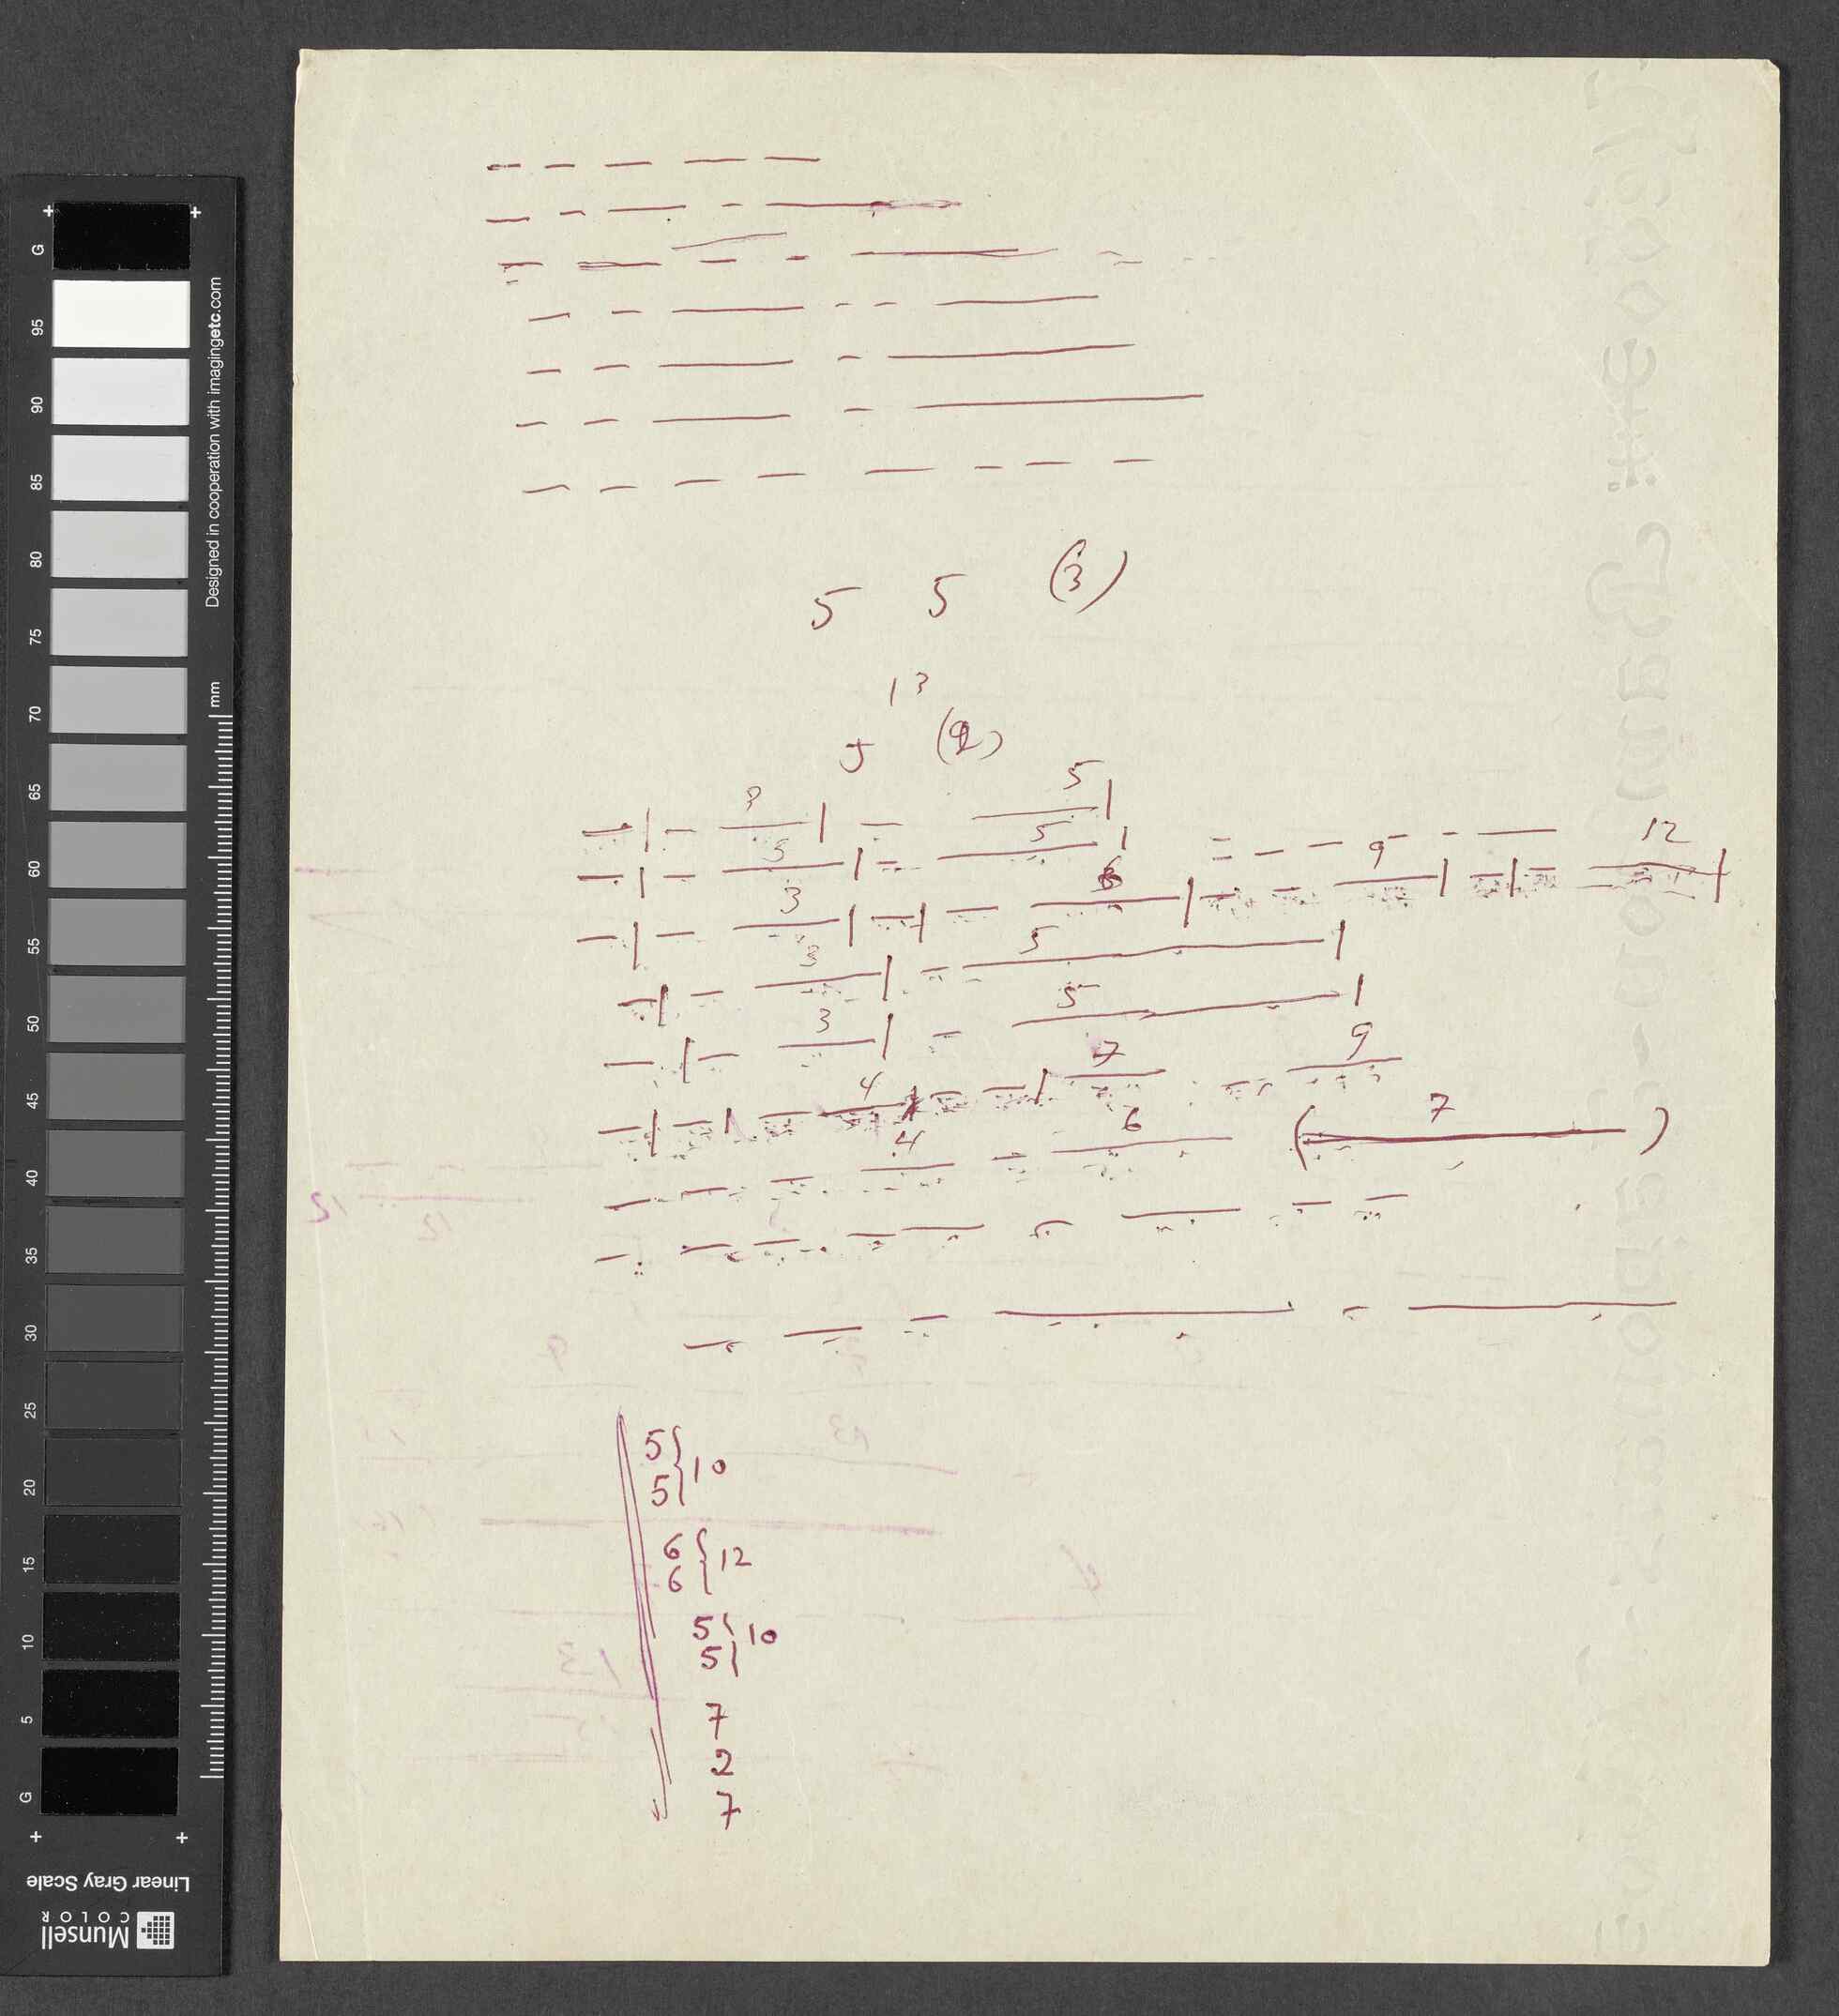 5 5 (3)
13
5 (9)
3 5
5 5
12
3 6 9
3 5
3 5
4 7 9
4 6 ( 7 )
5
5
10
6
6
12
5
5
10
7
2
7
Designed in cooperation with imagingetc.com
mm
G
95
90
85
80
75
70
65
60
55
50
45
40
35
30
25
20
15
10
5
G
Linear Gray Scale
Munsell
COLOR